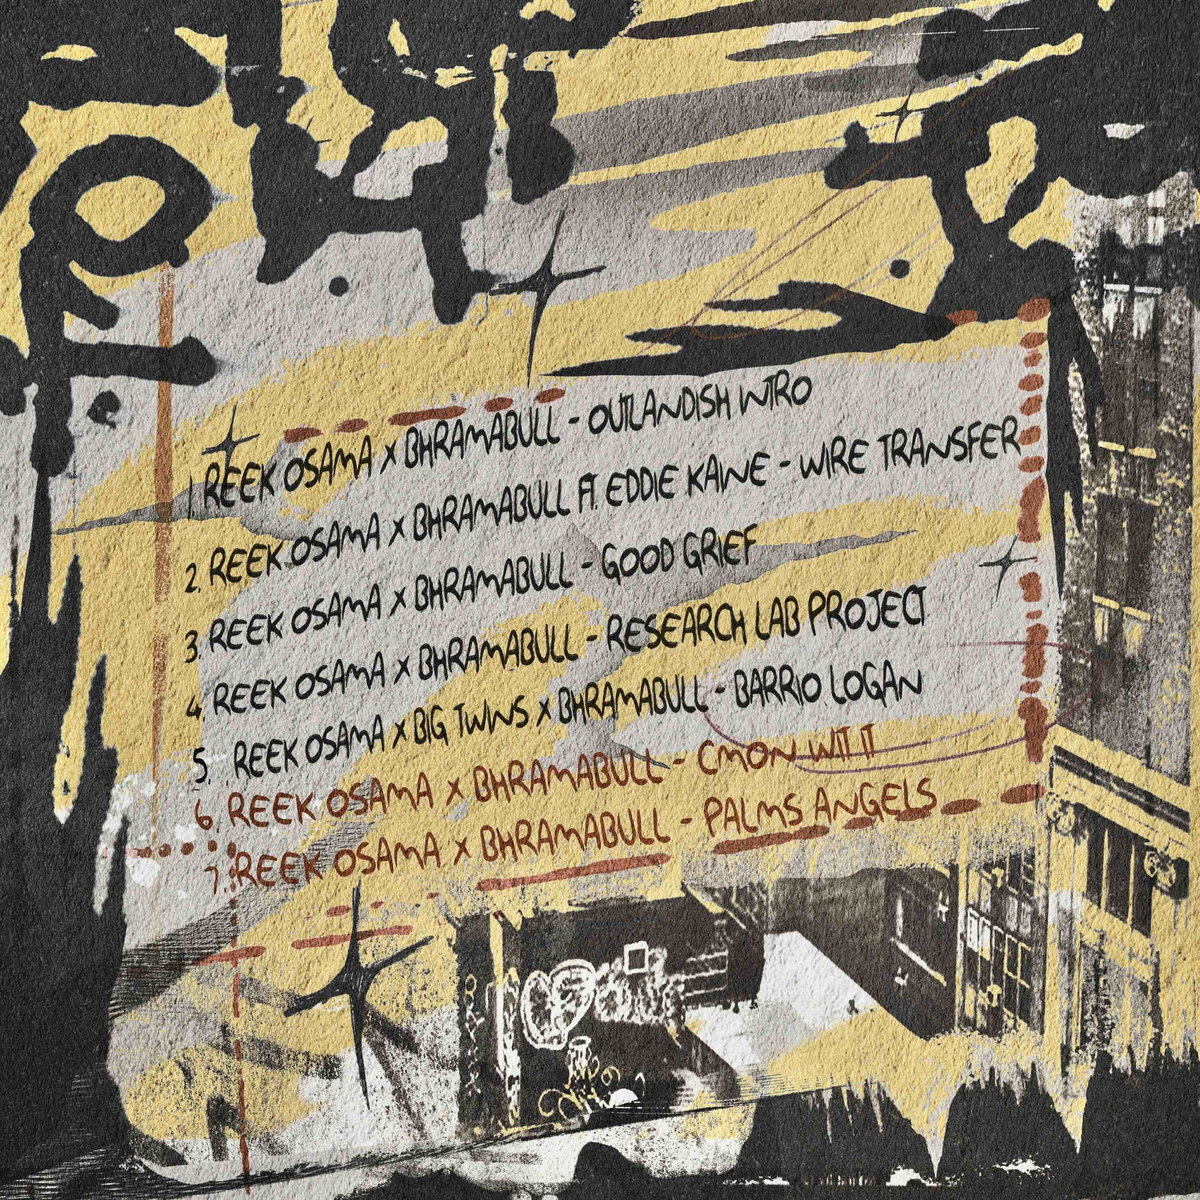 1. REEK OSAMA X BHRAMABULL - OUTLANDISH INTRO
2. REEK OSAMA X BHRAMABULL FT. EDDIE KAINE - WIRE TRANSFER
3. REEK OSAMA X BHRAMABULL - GOOD GRIEF
4. REEK OSAMA X BHRAMABULL - RESEARCH LAB PROJECT
5. REEK OSAMA X BIG TWINS X BHRAMABULL - BARRIO LOGAN
6. REEK OSAMA X BHRAMABULL - CMON WIT IT
7. REEK OSAMA X BHRAMABULL - PALMS ANGELS